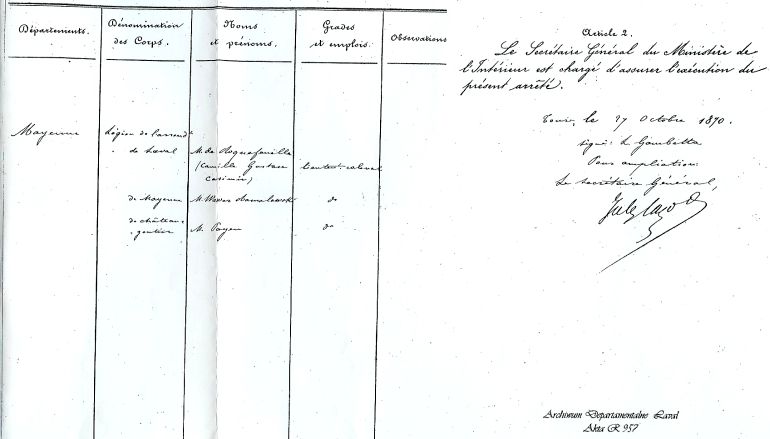 Départements.
Dénomination
des Corps.
Noms
et prénoms.
Grades
et emplois.
Observations
Mayenne
Légion de l'arrondt
de Laval
M. de Roquefeuille
(Camille Gustave
Casimir)
Lieutent-colonel
de Mayenne
M.
do
de château-
gontier
M. Payen
do
Article 2.
Le Secrétaire Général du Ministère de
l'Intérieur est chargé d'assurer l'exécution du
présent arrêté.
Tours, le 27 Octobre 1870.
signé: L. Gambetta
Pour ampliation:
Le Secrétaire Général,
Archiwum Departamentalne Laval
Akta R 957